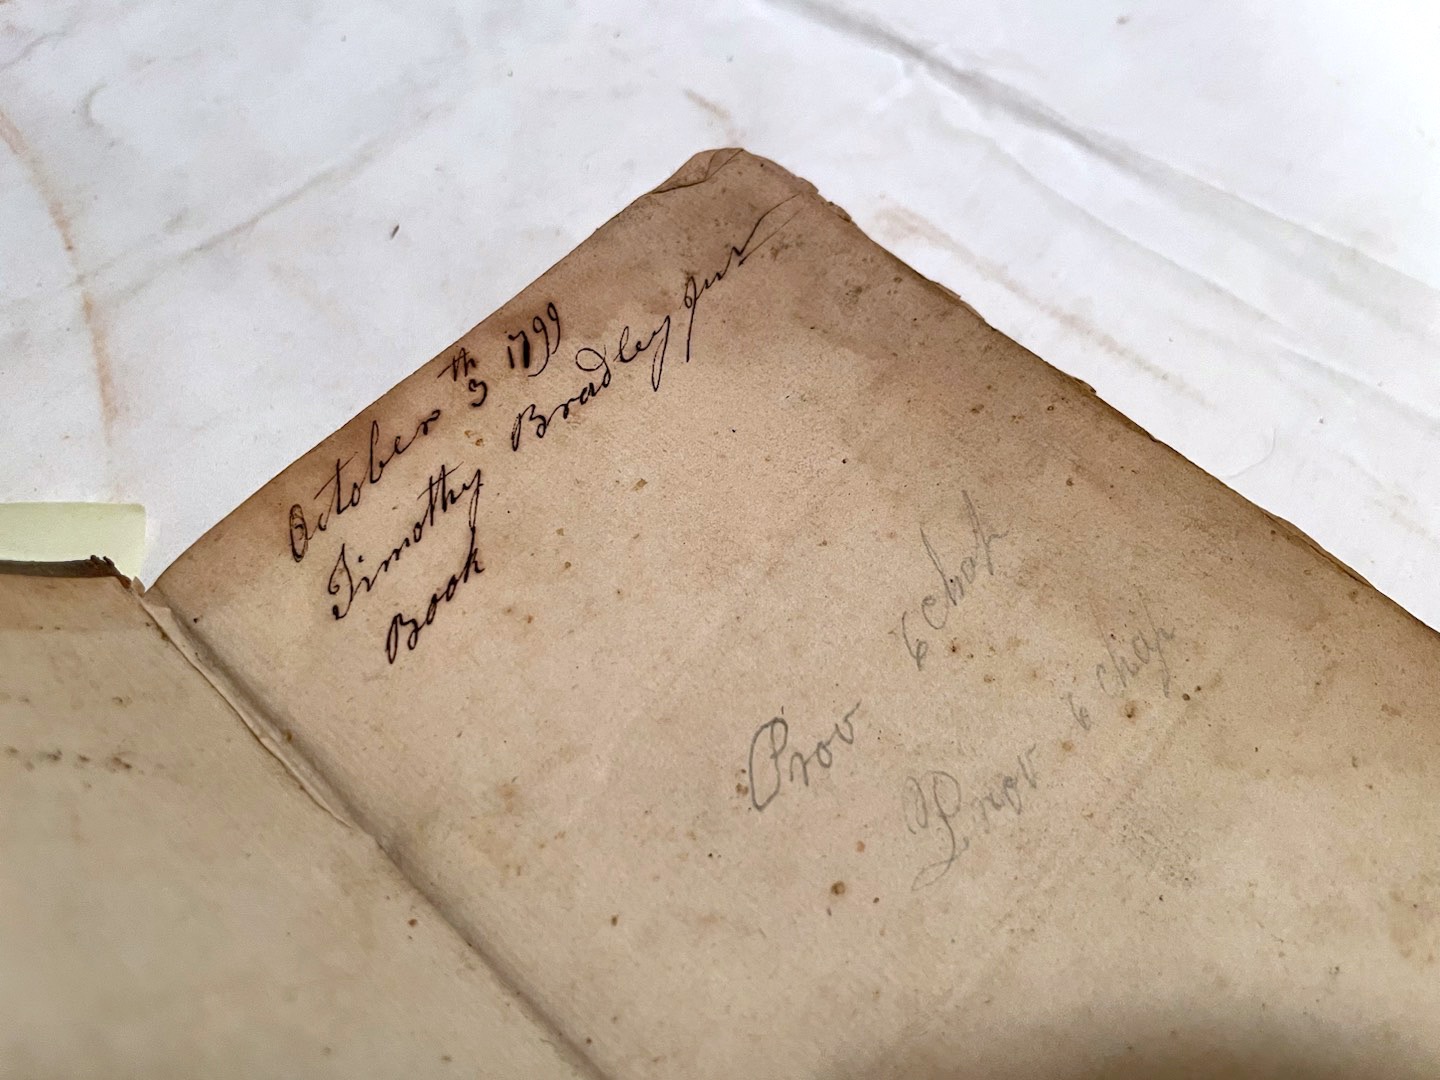 October 3th 1799
Timothy Bradley Junr
Book
Prov 6 chap
Prov 6 chap